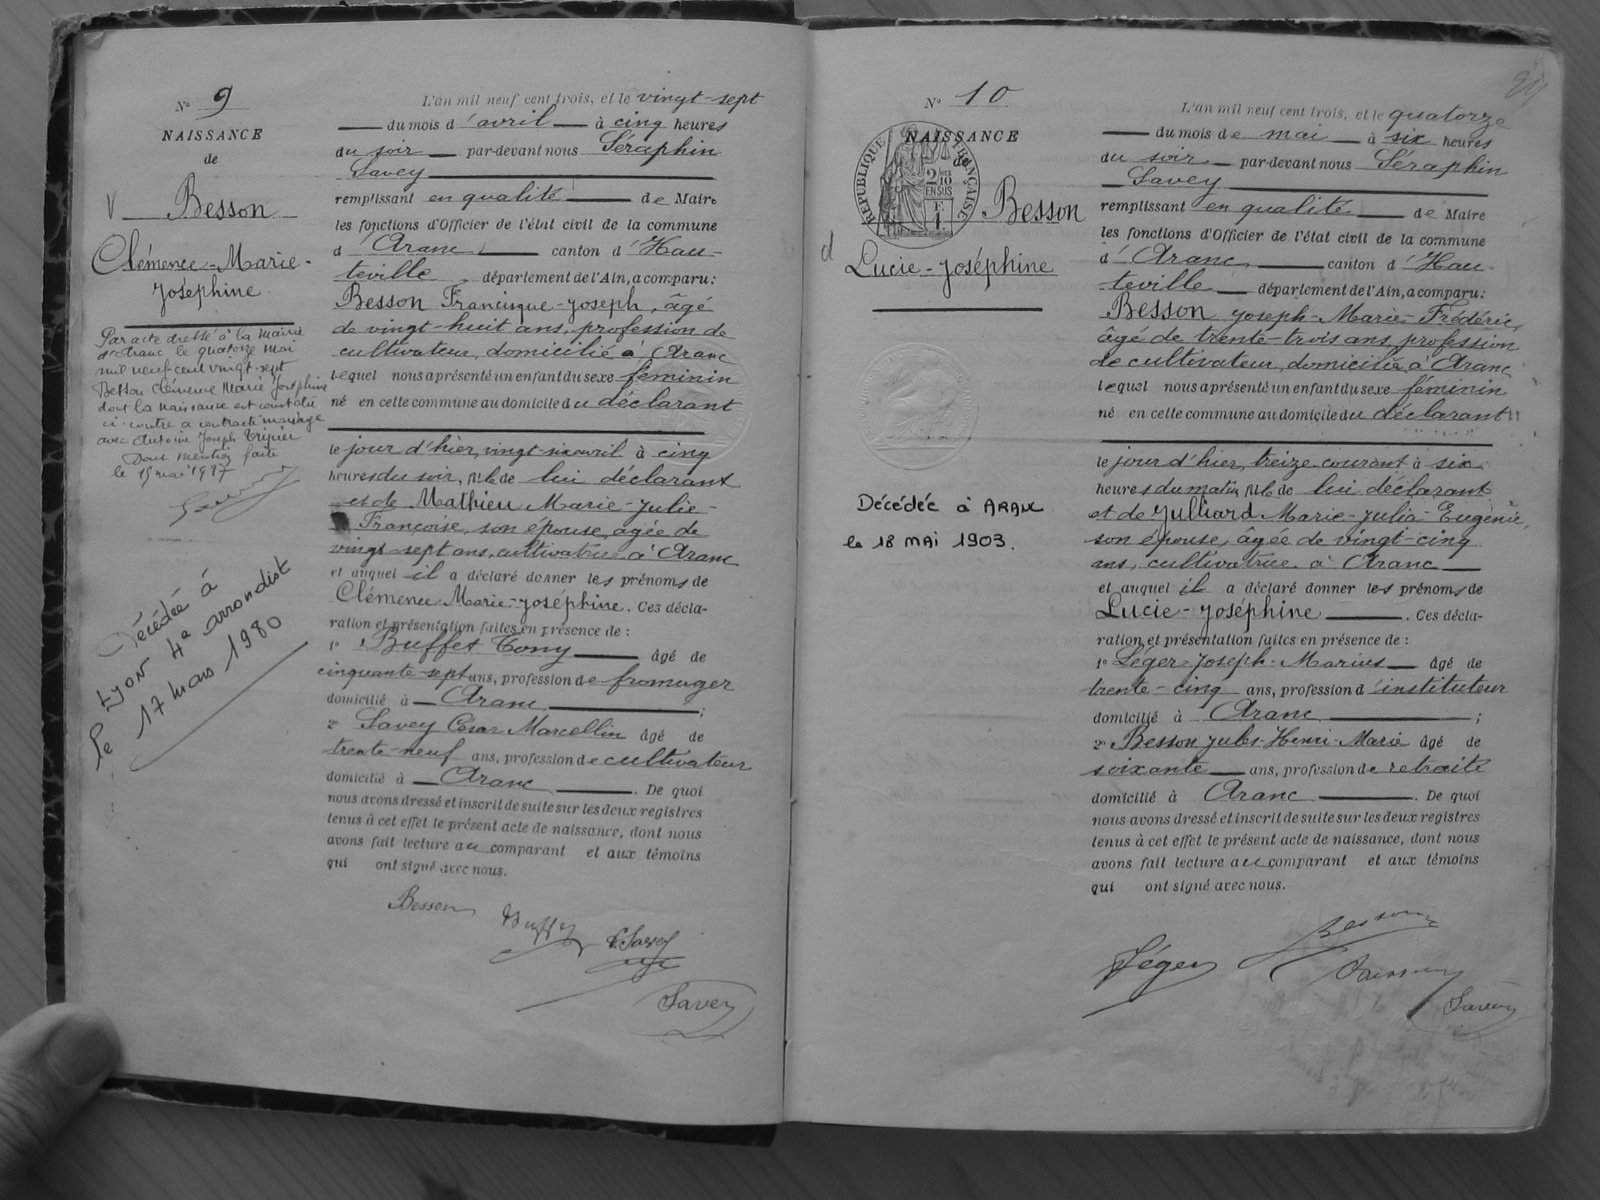 Nº 9
NAISSANCE
de
V Besson
Clémence-Marie-
Joséphine
Par acte dressé à la Mairie
d'Aranc le quatorze mai
mil neuf cent vingt-sept
Besson Clémence Marie Joséphine
dont la naissance est constatée
ci-contre a contracté mariage
avec Antoine Joseph
Dont mention faite
le 15 mai 1927
Décédée à
Lyon 4e arrondist
le 17 mars 1980
L'an mil neuf cent trois, et le vingt-sept
du mois d'avril à cinq heures
du soir par-devant nous Séraphin
Savey
remplissant en qualité de Maire
les fonctions d'Officier de l'état civil de la commune
d'Aranc canton d'Hau-
teville département de l'Ain, a comparu:
Besson Francisque-Joseph, âgé
de vingt-huit ans, profession de
cultivateur, domicilié à Aranc
lequel nous a présenté un enfant du sexe féminin
né en cette commune au domicile du déclarant
le jour d'hier, vingt-six avril à cinq
heures du soir, fille de lui déclarant
et de Mathieu Marie-Julie-
Françoise, son épouse, âgée de
vingt-sept ans, cultivatrice à Aranc
et auquel il a déclaré donner les prénoms de
Clémence Marie-Joséphine. Ces décla-
ration et présentation faites en présence de :
1º Buffet Tony âgé de
cinquante-sept ans, profession de fromager
domicilié à Aranc ;
2º Savey César Marcellin âgé de
trente-neuf ans, profession de cultivateur
domicilié à Aranc. De quoi
nous avons dressé et inscrit de suite sur les deux registres
tenus à cet effet le présent acte de naissance, dont nous
avons fait lecture au comparant et aux témoins
qui ont signé avec nous.
Besson Buffet C. Savey
Savey
24
Nº 10
NAISSANCE
de
RÉPUBLIQUE FRANÇAISE
2 10
EN SUS
Besson
d Lucie-Joséphine
Décédée à ARANC
le 18 mai 1903.
L'an mil neuf cent trois, et le quatorze
du mois de mai à six heures
du soir par-devant nous Séraphin
Savey
remplissant en qualité de Maire
les fonctions d'Officier de l'état civil de la commune
d'Aranc canton d'Hau-
teville département de l'Ain, a comparu:
Besson Joseph-Marie-Frédéric,
âgé de trente-trois ans, profession
de cultivateur, domicilié à Aranc
lequel nous a présenté un enfant du sexe féminin
né en cette commune au domicile du déclarant
le jour d'hier, treize courant à six
heures du matin, fille de lui déclarant
et de Julliard Marie-Julia-Eugénie,
son épouse, âgée de vingt-cinq
ans, cultivatrice à Aranc
et auquel il a déclaré donner les prénoms de
Lucie-Joséphine. Ces décla-
ration et présentation faites en présence de :
1º Léger Joseph-Marius âgé de
trente-cinq ans, profession d'instituteur
domicilié à Aranc ;
2º Besson Jules-Henri-Marie âgé de
soixante ans, profession de retraité
domicilié à Aranc. De quoi
nous avons dressé et inscrit de suite sur les deux registres
tenus à cet effet le présent acte de naissance, dont nous
avons fait lecture au comparant et aux témoins
qui ont signé avec nous.
Léger Besson
Besson
Savey